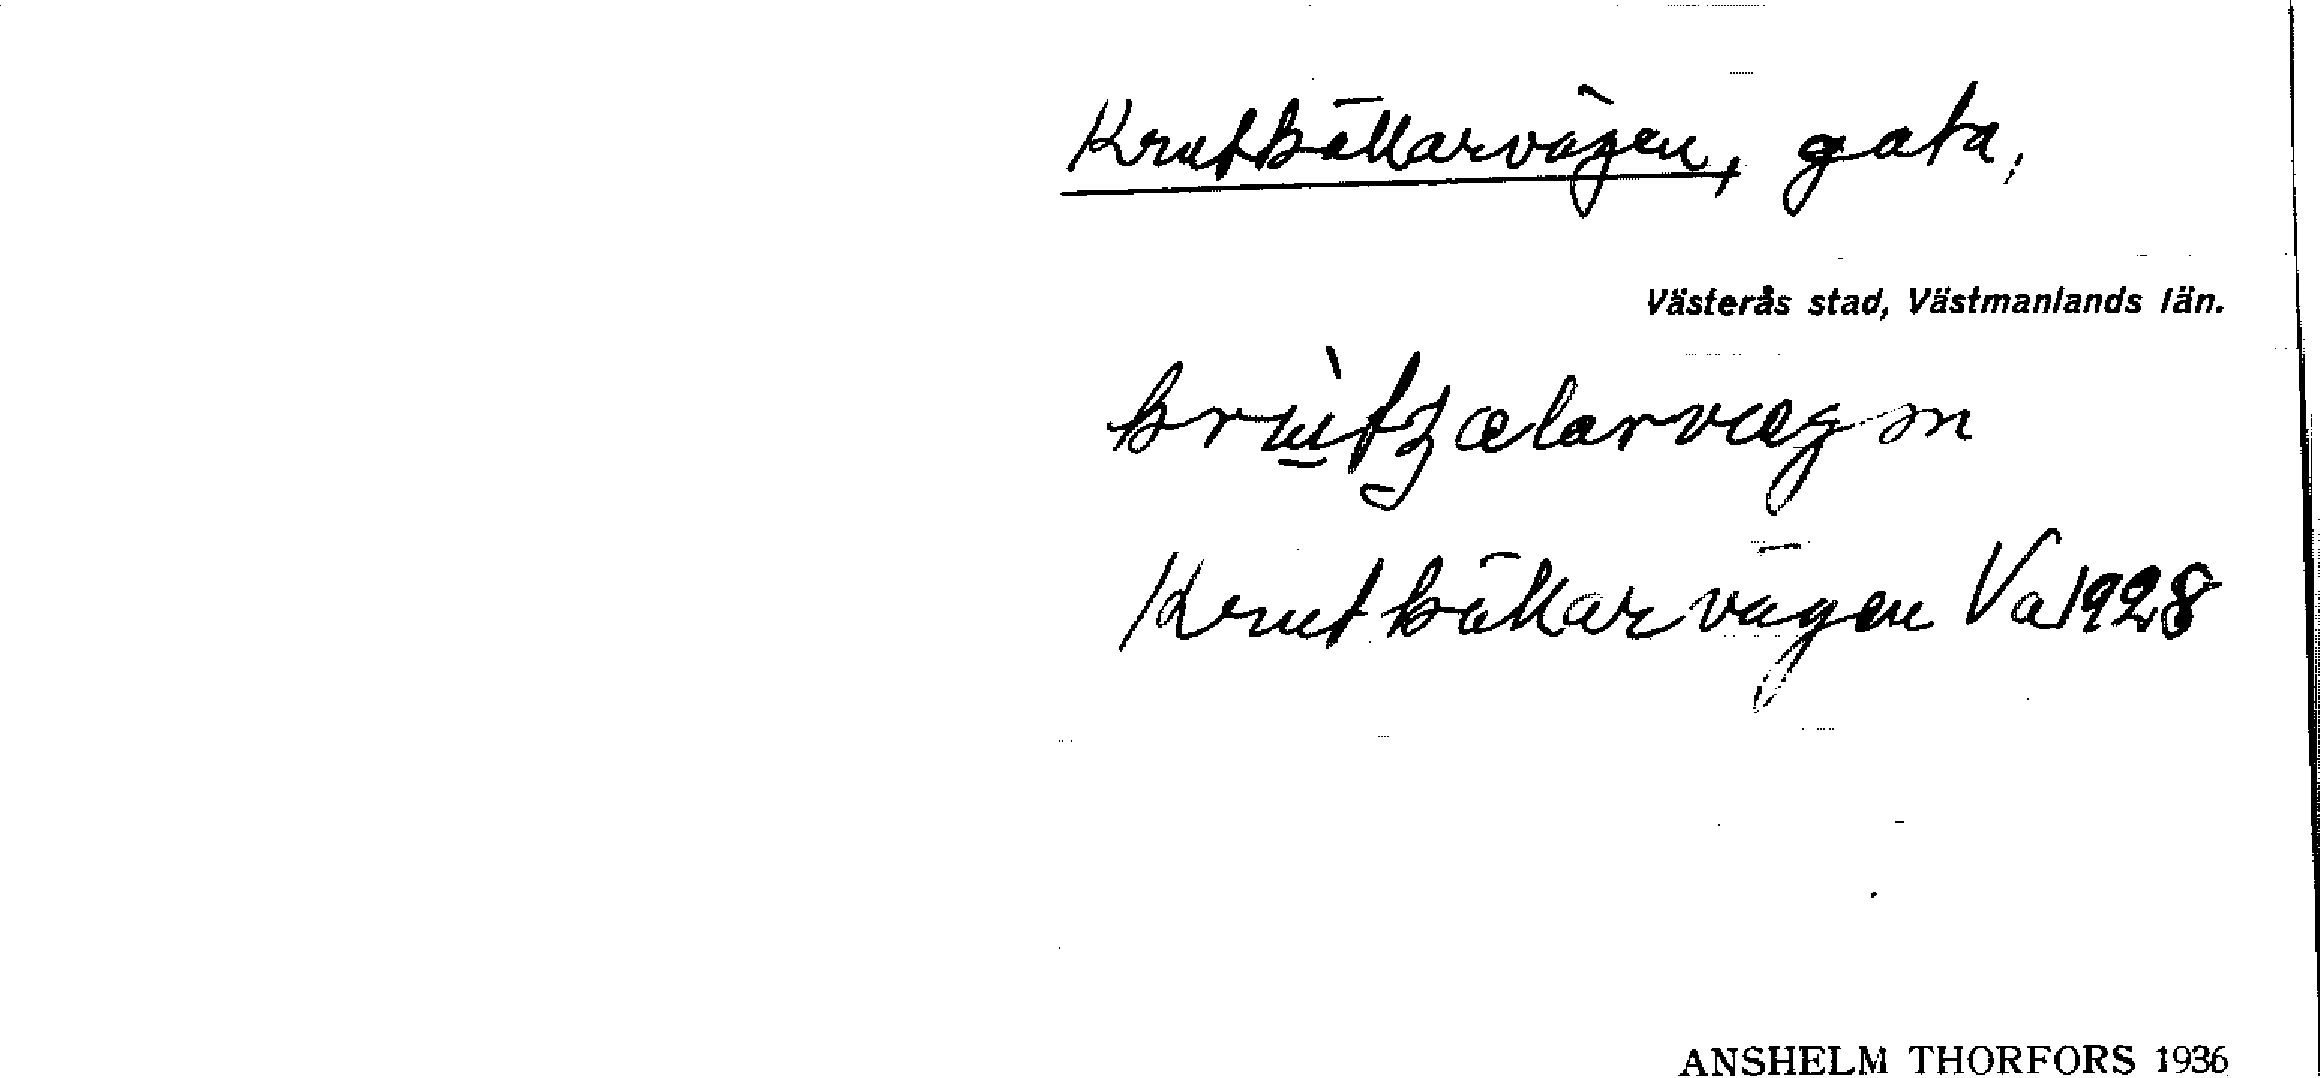 Krutkällarvägen, gata,
Västerås stad, Västmanlands län.
Krutkällarvägen Va 1928
ANSHELM THORFORS 1936